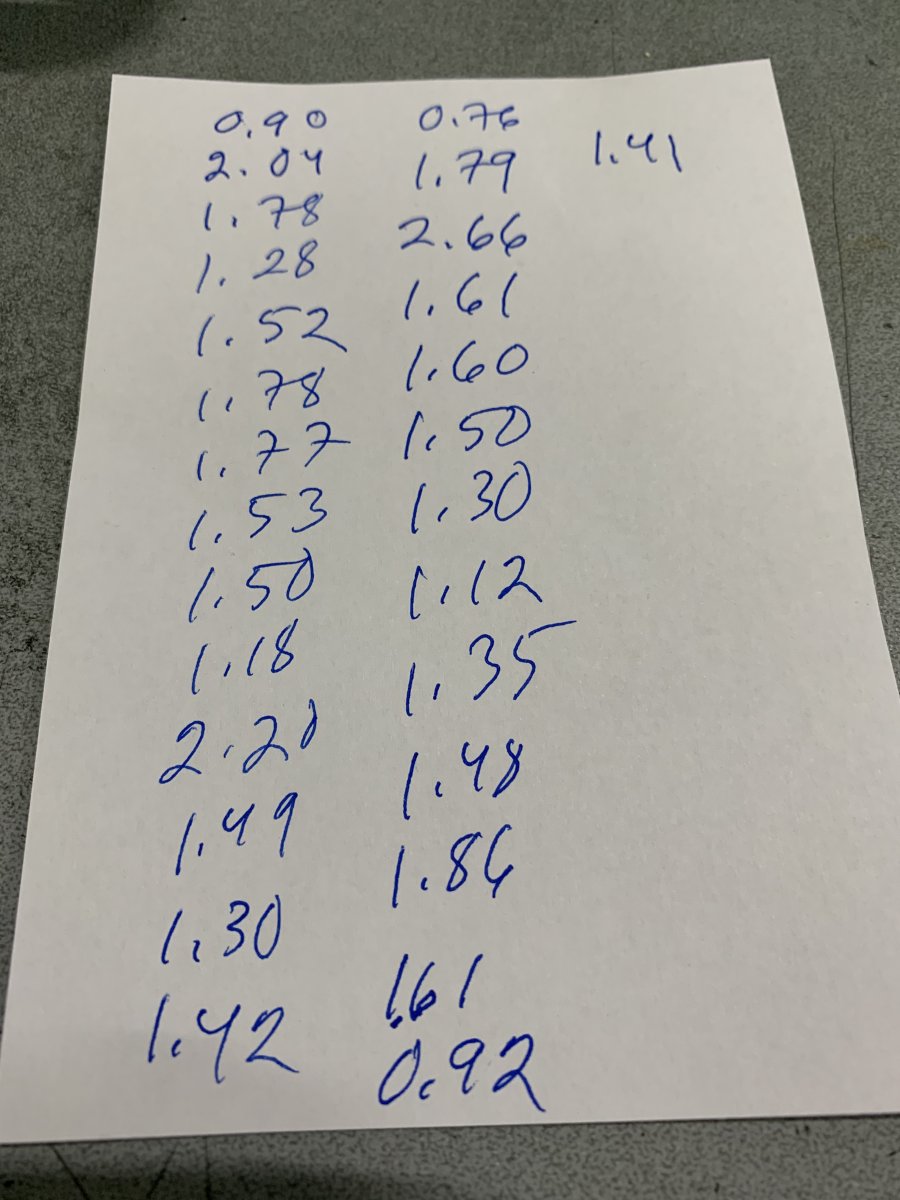 0.90
2.04
1.78
1.28
1.52
1.78
1.77
1.53
1.50
1.18
2.20
1.49
1.30
1.42
0.76
1.79
2.66
1.61
1.60
1.50
1.30
1.12
1.35
1.48
1.86
1.61
0.92
1.41